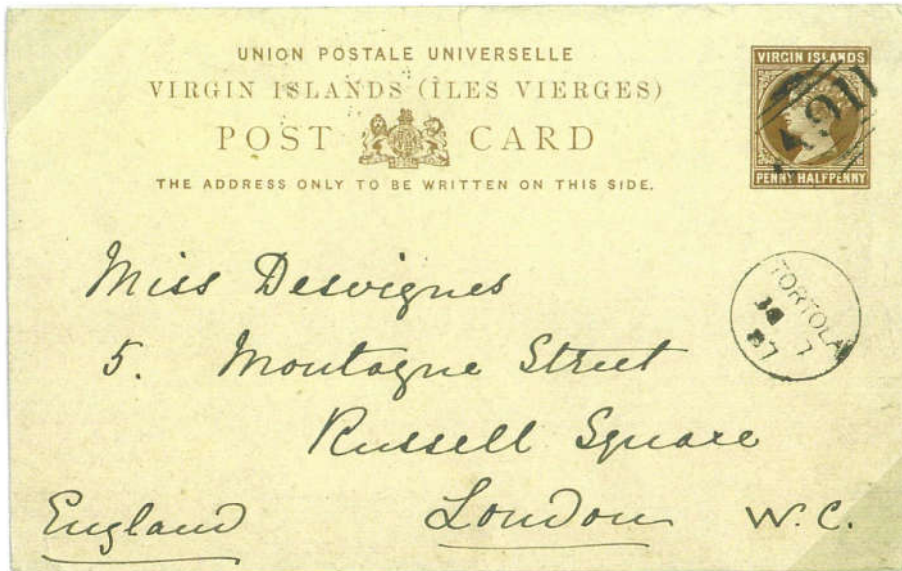 UNION POSTALE UNIVERSELLE
VIRGIN ISLANDS (ÎLES VIERGES)
POST CARD
THE ADDRESS ONLY TO BE WRITTEN ON THIS SIDE.
VIRGIN ISLANDS
PENNY HALFPENNY
A91
TORTOLA
7
87
Miss Desvignes
5. Montague Street
Russell Square
London W.C.
England